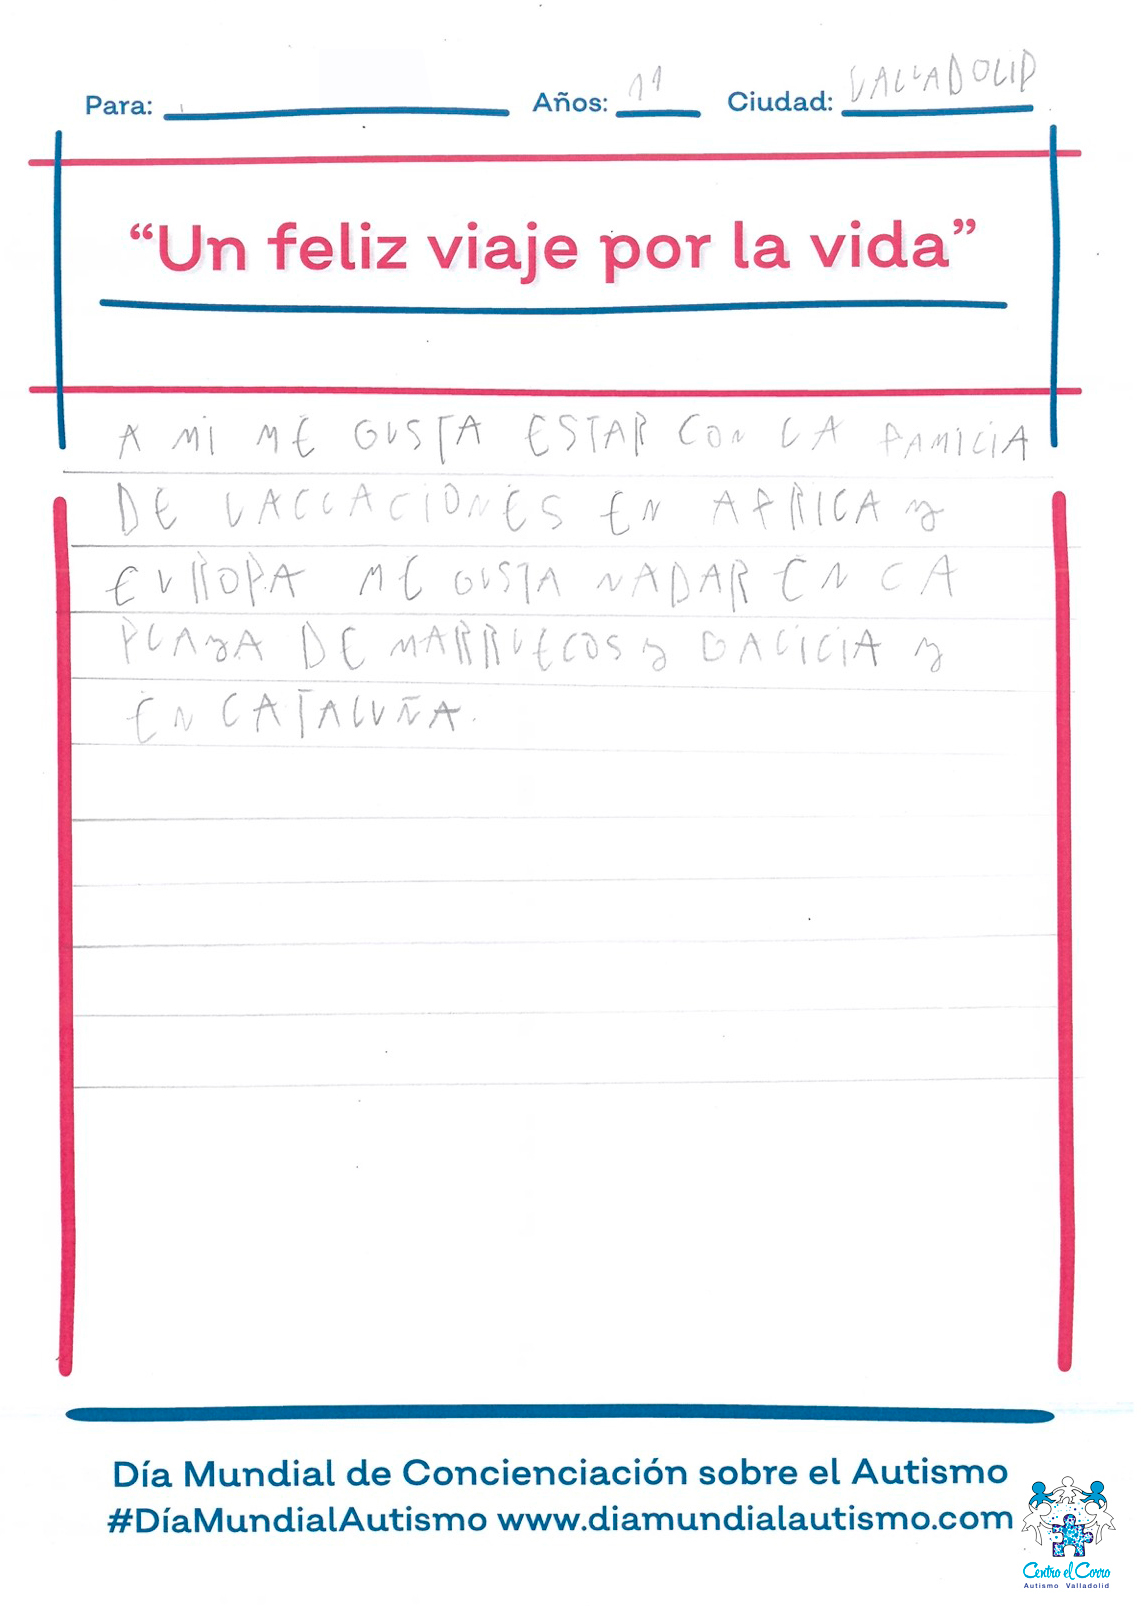 Para: Años: 11 Ciudad: VALLADOLID
“Un feliz viaje por la vida”
A MI ME GUSTA ESTAR CON LA FAMILIA
DE VACCACIONES EN AFRICA y
EUROPA ME GUSTA NADAR EN LA
PLAyA DE MARRUECOS y GALICIA y
EN CATALUÑA.
Día Mundial de Concienciación sobre el Autismo
#DíaMundialAutismo www.diamundialautismo.com
Centro el Corro
Autismo Valladolid